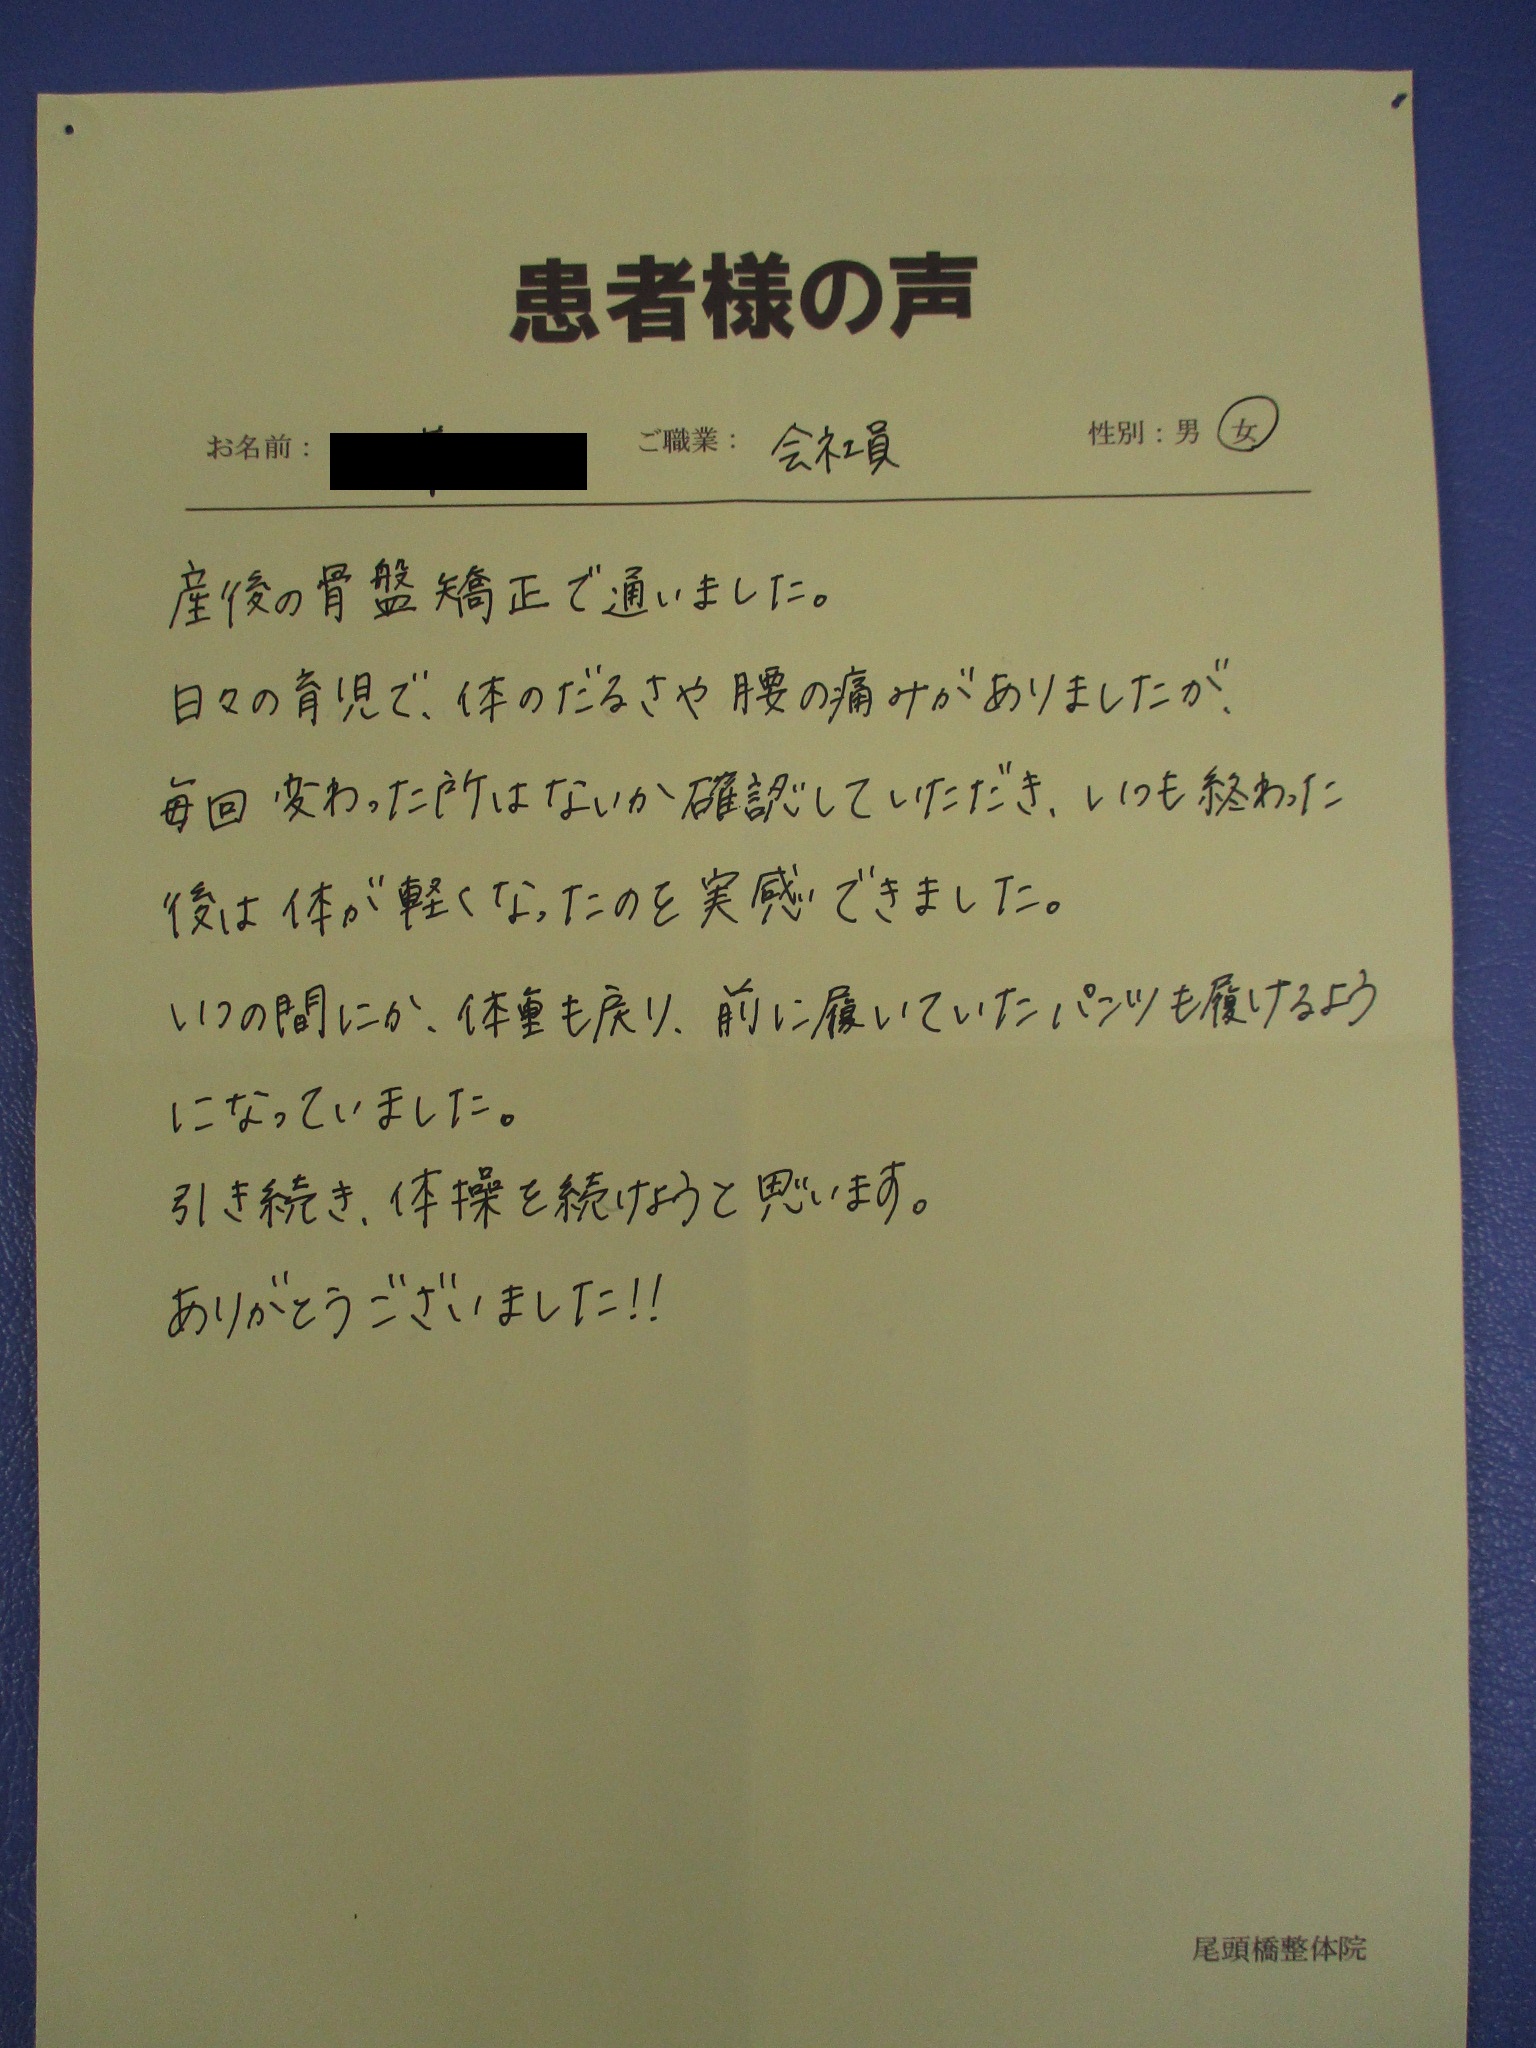 患者様の声
お名前： ご職業： 会社員 性別：男 女
産後の骨盤矯正で通いました。
日々の育児で、体のだるさや腰の痛みがありましたが、
毎回変わった所はないか確認していただき、いつも終わった
後は体が軽くなったのを実感できました。
いつの間にか、体重も戻り、前に履いていたパンツも履けるよう
になっていました。
引き続き、体操を続けようと思います。
ありがとうございました!!
尾頭橋整体院